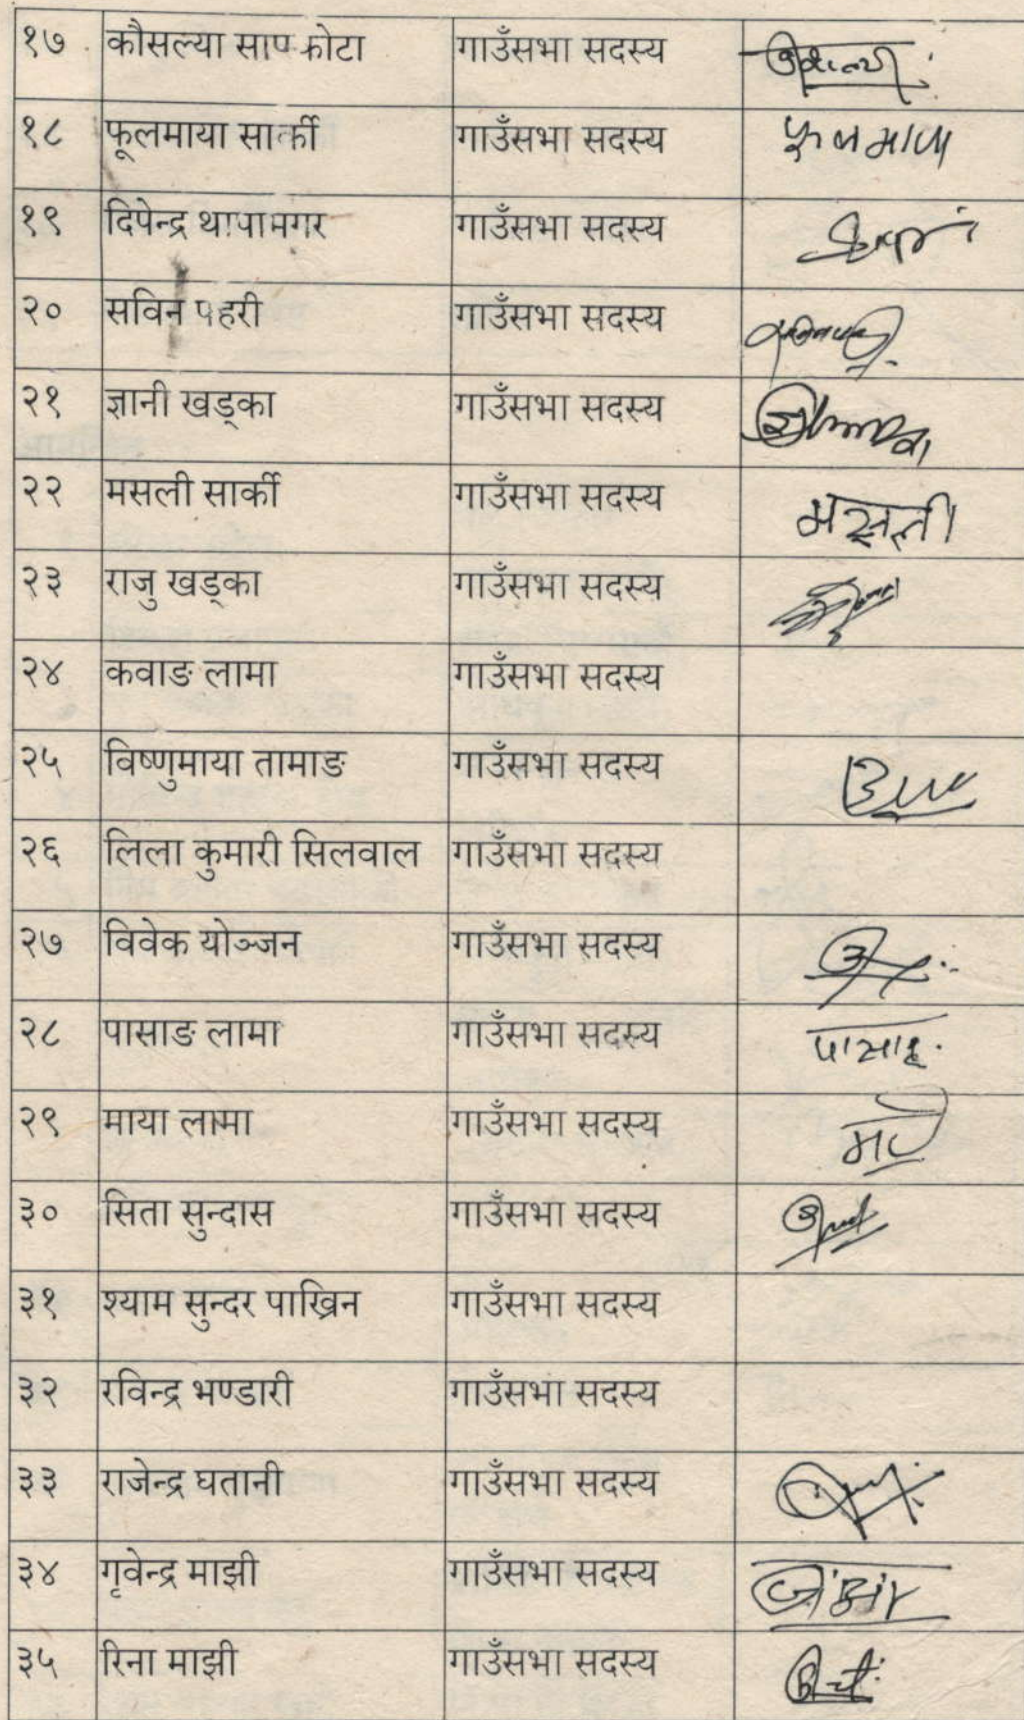 १७ कौसल्या सापकोटा गाउँसभा सदस्य
१८ फूलमाया सार्की गाउँसभा सदस्य फूलमाया
१९ दिपेन्द्र थापामगर गाउँसभा सदस्य
२० सविन पहरी गाउँसभा सदस्य
२१ ज्ञानी खड्का गाउँसभा सदस्य
२२ मसली सार्की गाउँसभा सदस्य मसली
२३ राजु खड्का गाउँसभा सदस्य
२४ कवाङ लामा गाउँसभा सदस्य
२५ विष्णुमाया तामाङ गाउँसभा सदस्य
२६ लिला कुमारी सिलवाल गाउँसभा सदस्य
२७ विवेक योञ्जन गाउँसभा सदस्य
२८ पासाङ लामा गाउँसभा सदस्य पासाङ
२९ माया लामा गाउँसभा सदस्य
३० सिता सुन्दास गाउँसभा सदस्य
३१ श्याम सुन्दर पाख्रिन गाउँसभा सदस्य
३२ रविन्द्र भण्डारी गाउँसभा सदस्य
३३ राजेन्द्र घतानी गाउँसभा सदस्य
३४ गृवेन्द्र माझी गाउँसभा सदस्य
३५ रिना माझी गाउँसभा सदस्य